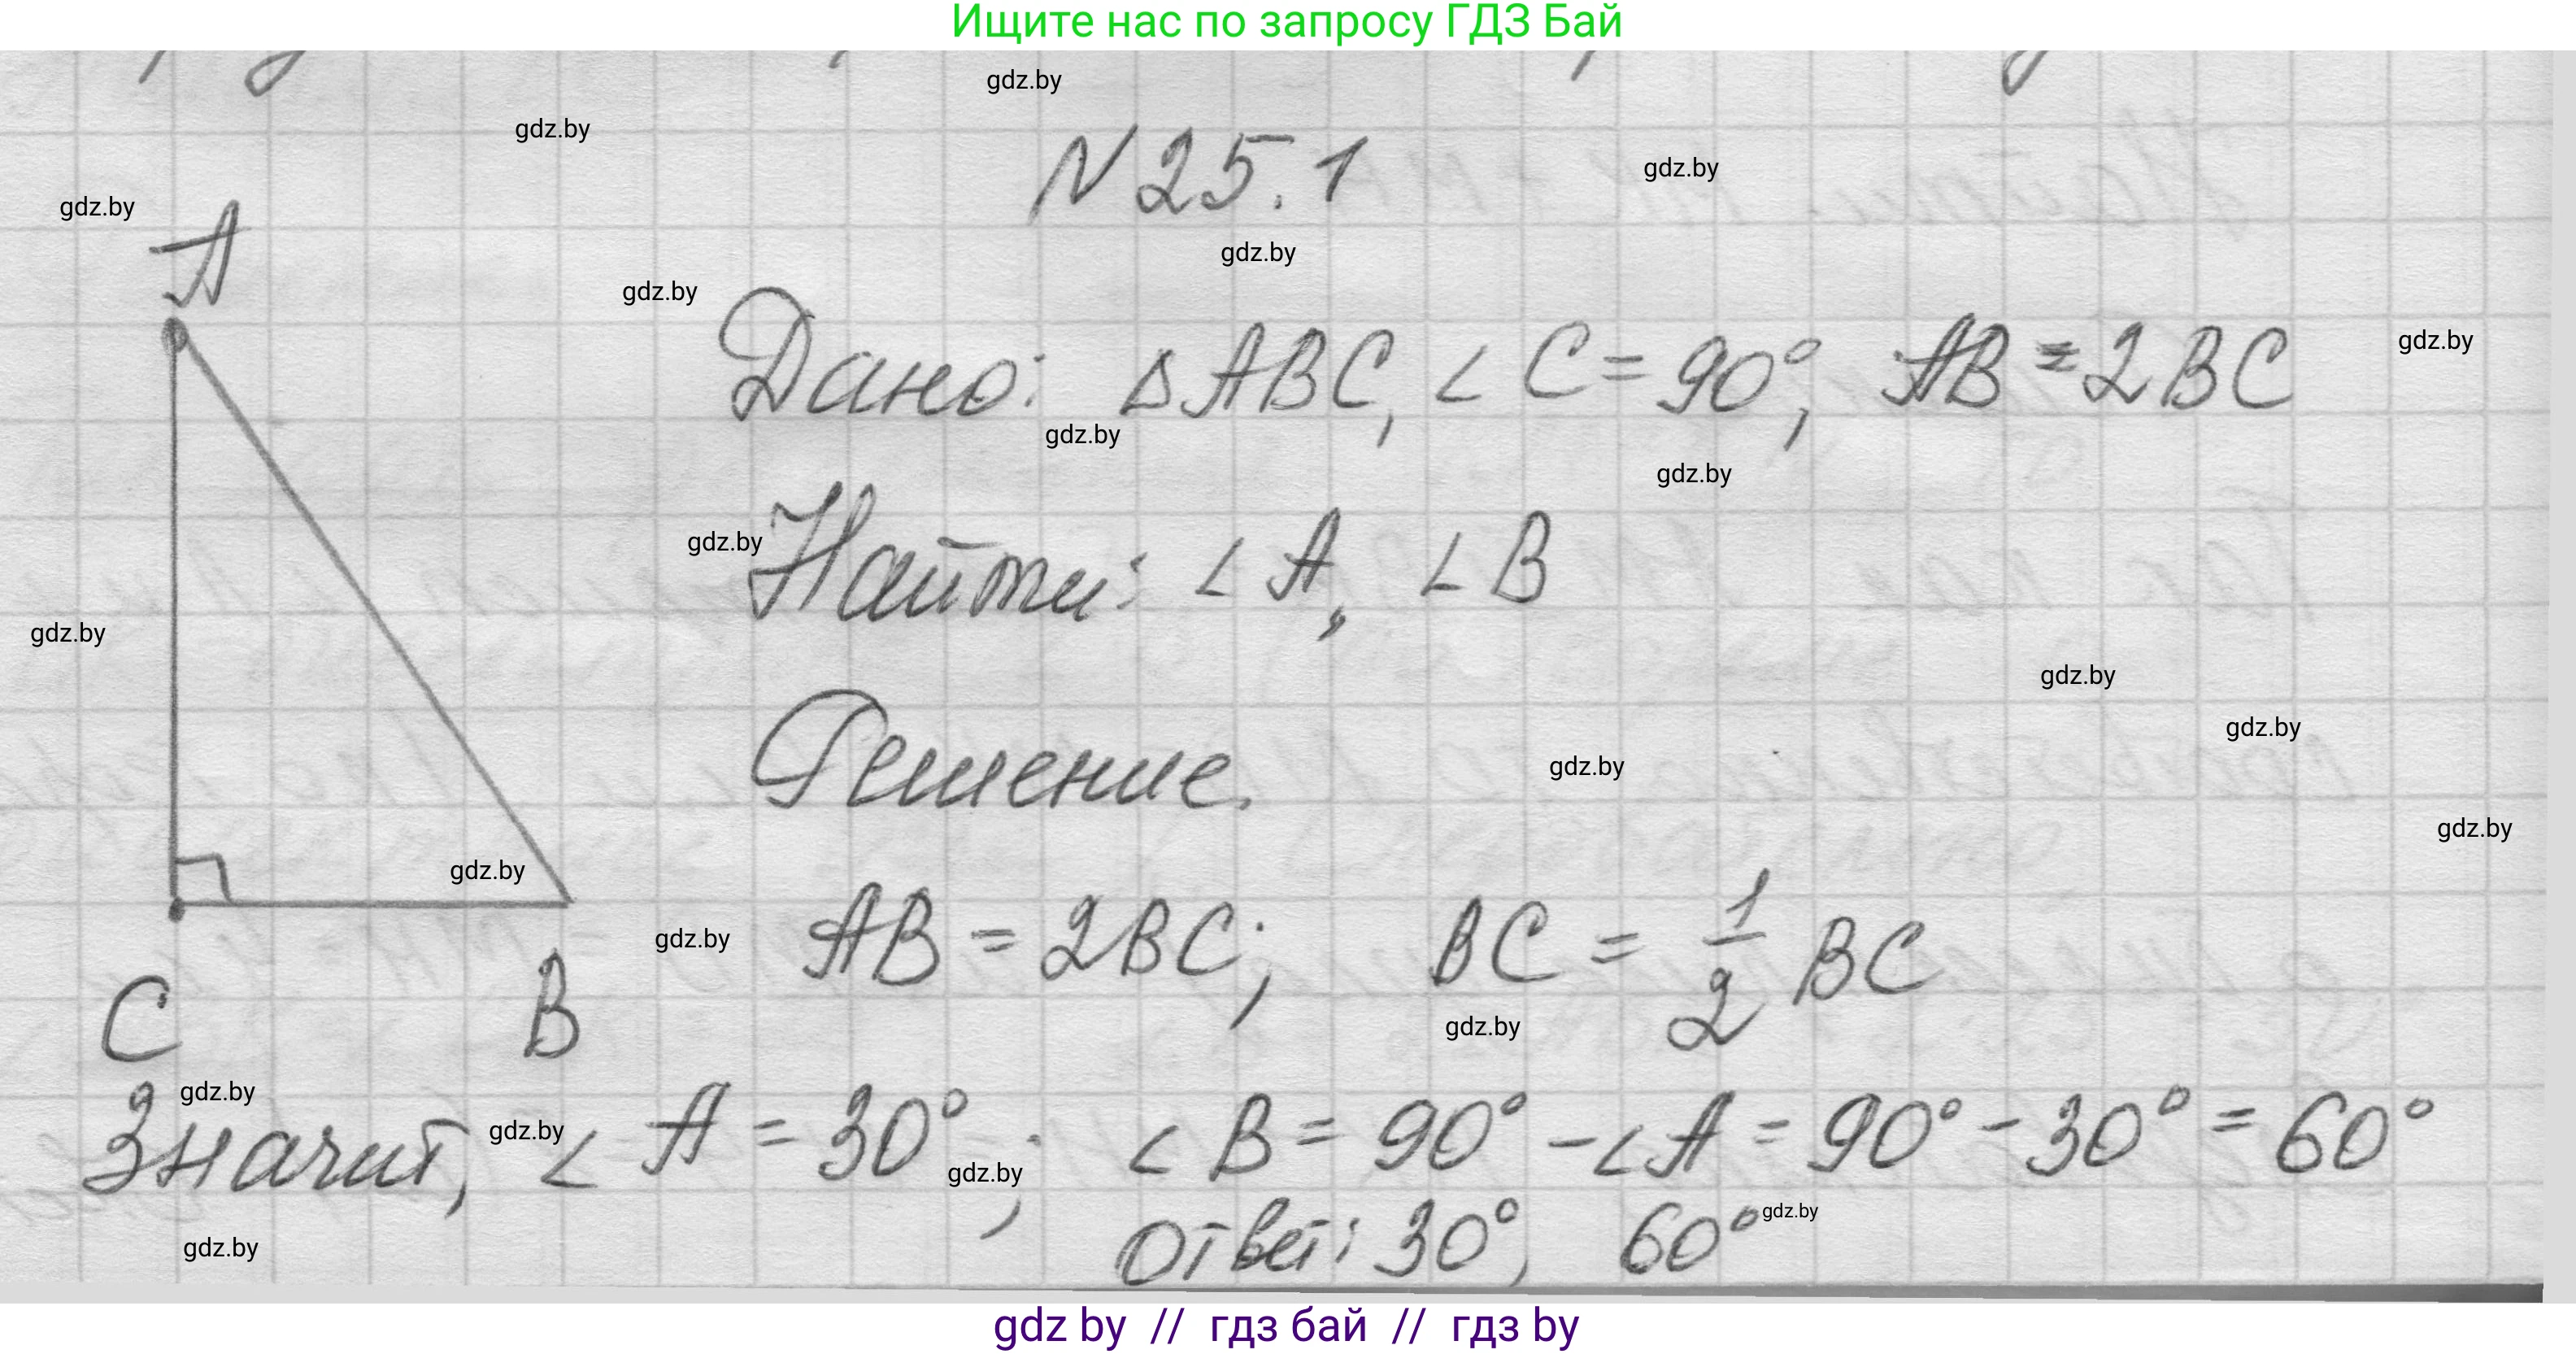 Ищите нас по запросу ГДЗ Бай
gdz.by
gdz.by
N 25.1
gdz.by
gdz.by
A
gdz.by
gdz.by
Дано: △ABC, ∠C = 90°, AB = 2BC
gdz.by
gdz.by
gdz.by
gdz.by
Найти: ∠A, ∠B
gdz.by
gdz.by
gdz.by
Решение.
gdz.by
gdz.by
gdz.by
gdz.by
AB = 2BC; BC = 1/2 BC
C B
gdz.by
gdz.by
Значит, ∠A = 30°; ∠B = 90° - ∠A = 90° - 30° = 60°
gdz.by
gdz.by
gdz.by
Ответ: 30°, 60°
gdz.by
gdz by // гдз бай // гдз by